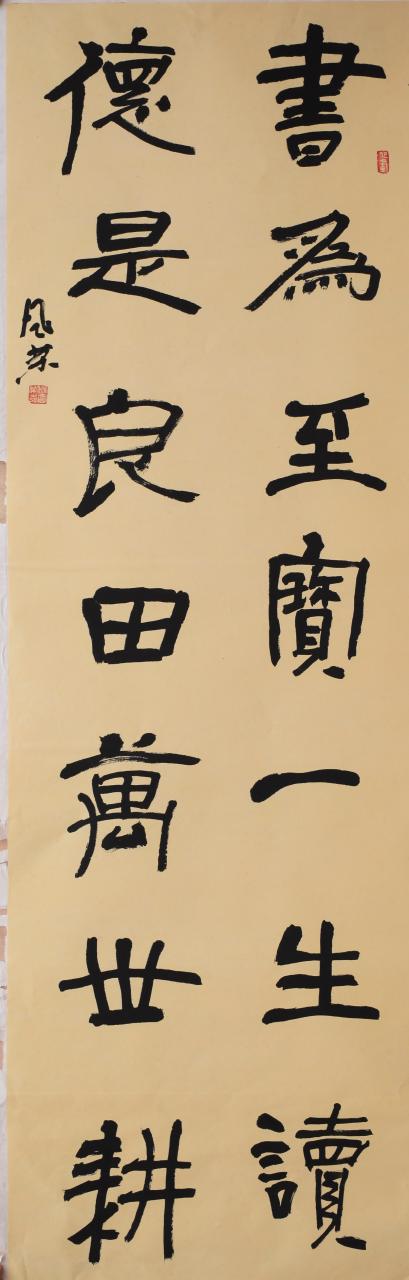 書為至寶一生讀
德是良田萬世耕